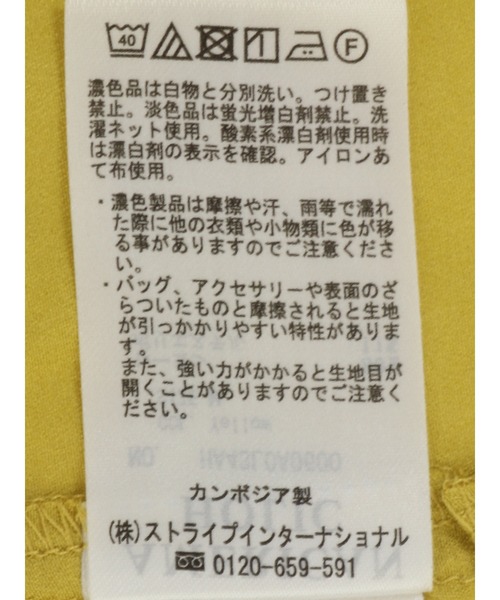 40 F
濃色品は白物と分別洗い。つけ置き
禁止。淡色品は蛍光増白剤禁止。洗
濯ネット使用。酸素系漂白剤使用時
は漂白剤の表示を確認。アイロンあ
て布使用。
・濃色製品は摩擦や汗、雨等で濡れ
た際に他の衣類や小物類に色が移
る事がありますのでご注意くださ
い。
・バッグ、アクセサリーや表面のざ
らついたものと摩擦されると生地
が引っかかりやすい特性がありま
す。
また、強い力がかかると生地目が
開くことがありますのでご注意く
ださい。
Yellow
NO. HA43L0A0600
カンボジア製
(株)ストライプインターナショナル
0120-659-591
HOLIC
AMERICAN